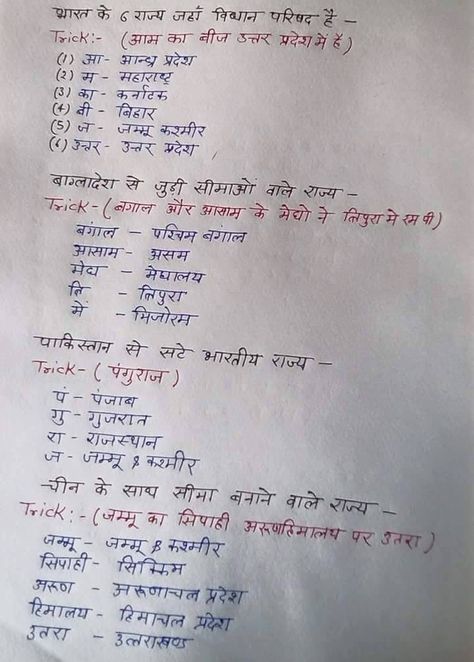 भारत के 6 राज्य जहाँ विधान परिषद है –
Trick:- (आम का बीज उत्तर प्रदेश में है)
(1) आ- आन्ध्र प्रदेश
(2) म - महाराष्ट्र
(3) का - कर्नाटक
(4) बी - बिहार
(5) ज - जम्मू कश्मीर
(6) उत्तर - उत्तर प्रदेश
बाग्लादेश से जुड़ी सीमाओं वाले राज्य –
Trick-(बंगाल और आसाम के मेघो ने त्रिपुरा मे रम पी)
बंगाल – पश्चिम बंगाल
आसाम – असम
मेघ – मेघालय
त्रि – त्रिपुरा
में – मिजोरम
पाकिस्तान से सटे भारतीय राज्य –
Trick-( पंगुराज )
पं - पंजाब
गु - गुजरात
रा - राजस्थान
ज - जम्मू & कश्मीर
चीन के साथ सीमा बनाने वाले राज्य –
Trick:-(जम्मू का सिपाही अरूणहिमालय पर उतरा)
जम्मू – जम्मू & कश्मीर
सिपाही – सिक्किम
अरूण – अरूणाचल प्रदेश
हिमालय – हिमाचल प्रदेश
उतरा – उत्तराखण्ड